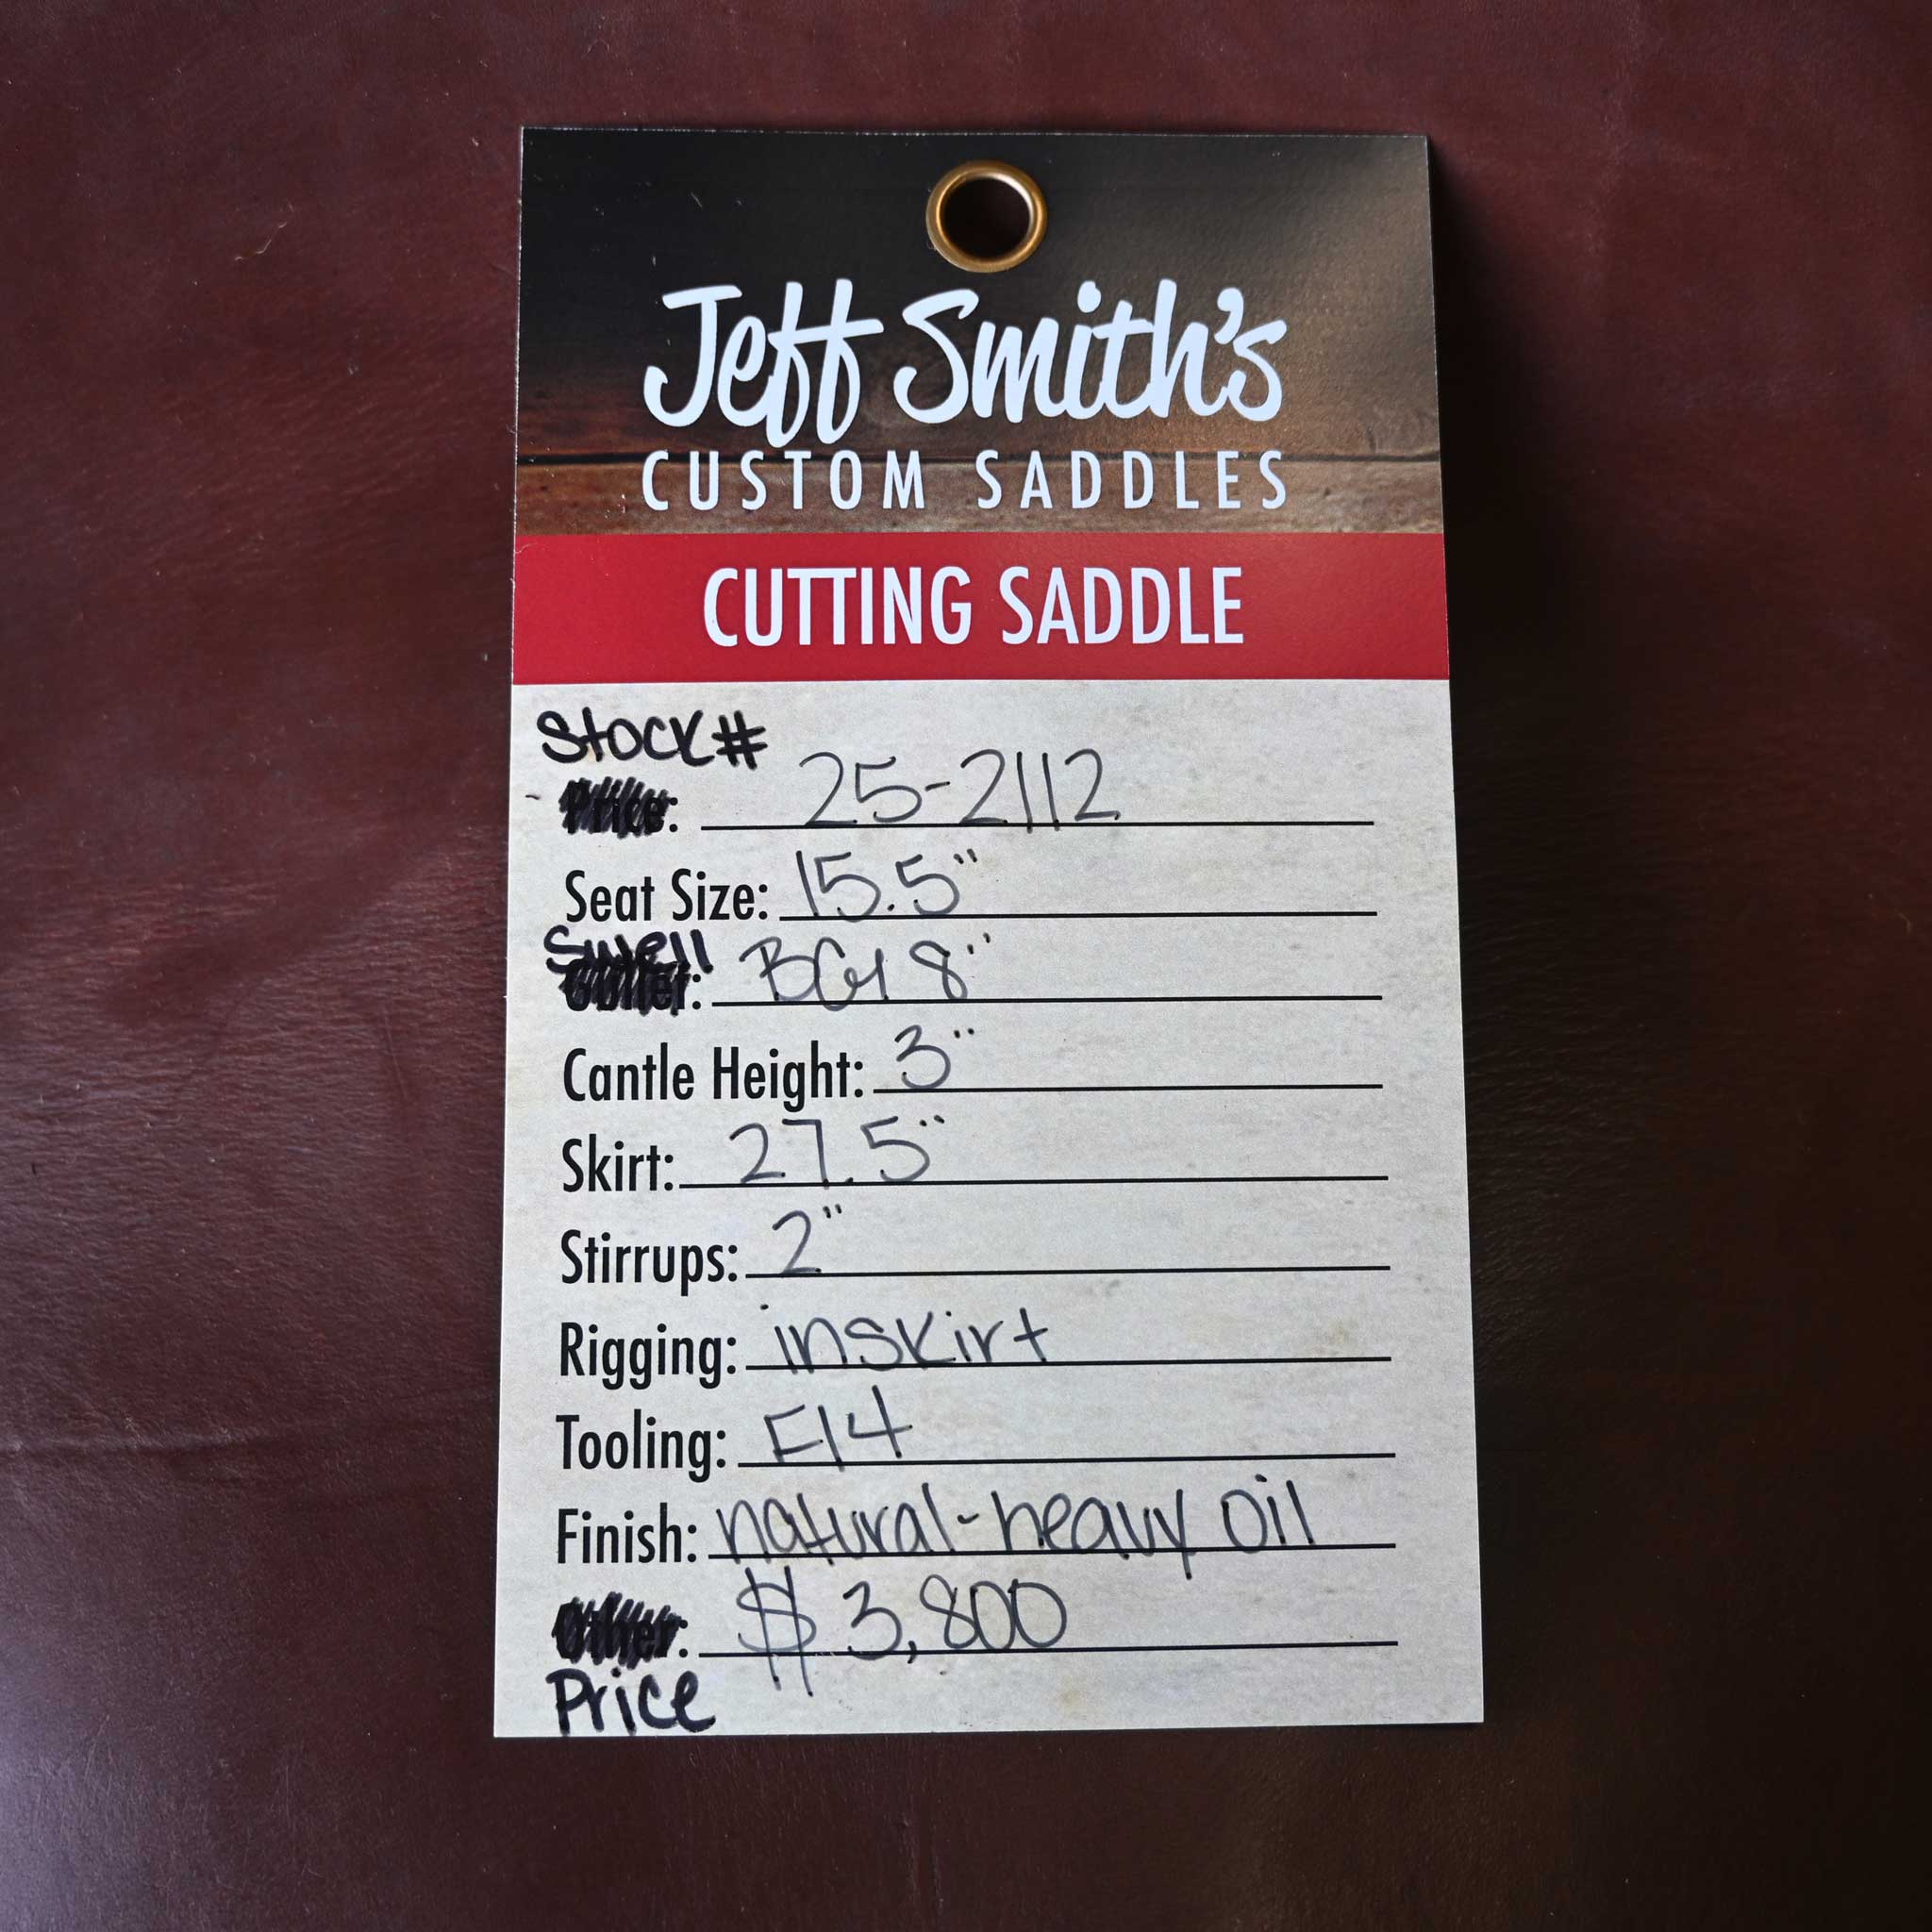 Jeff Smith's
CUSTOM SADDLES
CUTTING SADDLE
Stock#
Price: 25-2112
Seat Size: 15.5"
Swell
Gullet: BG1 8"
Cantle Height: 3"
Skirt: 27.5"
Stirrups: 2"
Rigging: inskirt
Tooling: E14
Finish: natural-heavy oil
Other: $3,800
Price